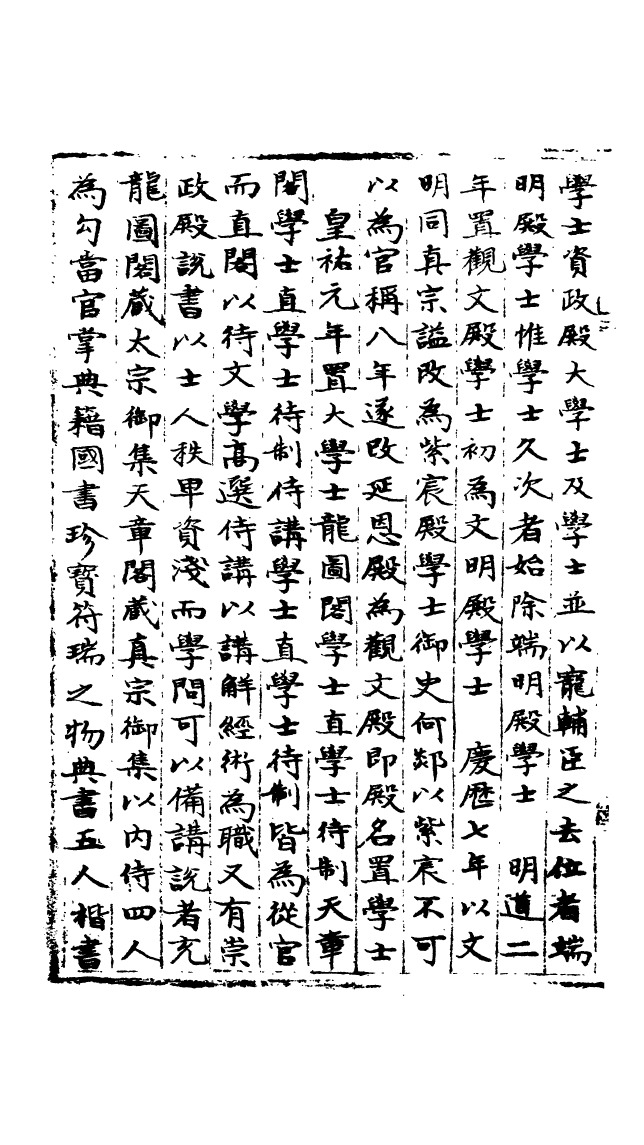 學士資政殿大學士及學士並以寵輔臣之去位者端
明殿學士惟學士久次者始除端明殿學士　明道二
年置觀文殿學士初為文明殿學士　慶歷七年以文
明同真宗謚改為紫宸殿學士御史何郯以紫宸不可
以為官稱八年遂改延恩殿為觀文殿即殿名置學士
皇祐元年置大學士龍圖閣學士直學士待制天章
閣學士直學士待制侍講學士直學士待制皆為從官
而直閣以待文學高選侍講以講解經術為職又有崇
政殿說書以士人秩卑資淺而學問可以備講說者充
龍圖閣藏太宗御集天章閣藏真宗御集以內侍四人
為勾當官掌典籍國書珍寶符瑞之物典書五人楷書